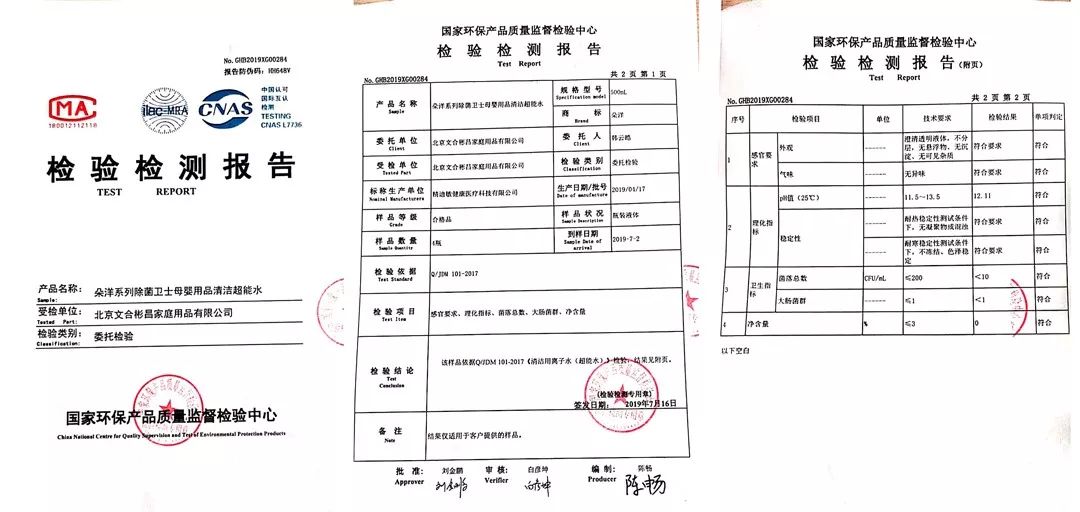 No. GHB2019XG00284
报告防伪码: IOH648V
MA
180012112118
ilac-MRA
CNAS
中国认可
国际互认
检测
TESTING
CNAS L7736
检验检测报告
TEST REPORT
产品名称: 朵洋系列除菌卫士母婴用品清洁超能水
Sample:
受检单位: 北京文合彬昌家庭用品有限公司
Tested Part:
检验类别: 委托检验
Classification:
国家环保产品质量监督检验中心
China National Centre for Quality Supervision and Test of Environmental Protection Products
国家环保产品质量监督检验中心
检验检测报告
Test Report
No. GHB2019XG00284 共 2 页 第 1 页
产品名称 朵洋系列除菌卫士母婴用品清洁超能水 规格型号 500mL
Sample Specification model
商标 朵洋
Brand
委托单位 北京文合彬昌家庭用品有限公司 委托人 韩云皓
Client Client
受检单位 北京文合彬昌家庭用品有限公司 检验类别 委托检验
Tested Part Classification
标称生产单位 精迪敏健康医疗科技有限公司 生产日期/批号 2019/01/17
Nominal Manufacturers Date of manufacture
样品等级 合格品 样品状况 瓶装液体
Grade Sample Description
样品数量 4瓶 到样日期 2019-7-2
Sample Quantity Sample Date of arrival
检验依据 Q/JDM 101-2017
Test Standard
检验项目 感官要求、理化指标、菌落总数、大肠菌群、净含量
Test Item
检验结论 该样品依据Q/JDM 101-2017《清洁用离子水（超能水）》检验，结果见附页。
Test Conclusion
(检验检测专用章)
签发日期: 2019年7月16日
备注 结果仅适用于客户提供的样品。
Note
批准: 刘金鹏 审核: 白彦坤 编制: 陈畅
Approver Verifier Producer
陈畅
国家环保产品质量监督检验中心
检验检测报告(附页)
Test Report
No. GHB2019XG00284 共 2 页 第 2 页
序号 检验项目 单位 技术要求 检验结果 单项判定
1 感官要求 外观 —— 澄清透明液体，不分层，无悬浮物、无沉淀、无可见杂质 符合要求 符合
气味 —— 无异味 符合要求 符合
2 理化指标 pH值（25℃） —— 11.5~13.5 12.11 符合
稳定性 —— 耐热稳定性测试条件下，无凝聚物或混浊 符合要求 符合
—— 耐寒稳定性测试条件下，不冻结、色泽稳定 符合要求 符合
3 卫生指标 菌落总数 CFU/mL ≤200 <10 符合
大肠菌群 —— ≤1 <1 符合
4 净含量 % ≤3 0 符合
以下空白